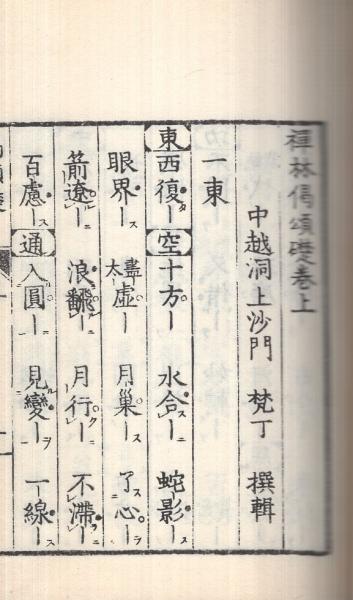 禪林偈頌礎卷上
中越洞上沙門 梵丁 撰輯
一東
東 西復ー 空 十方ー 水合ー 蛇影ー
眼界ー 盡太虛ー 月巢ー 了心ー
箭遼ー 浪飜ー 月行ー 不滯ー
百慮ー 通 入圓ー 見變ー 一線ー